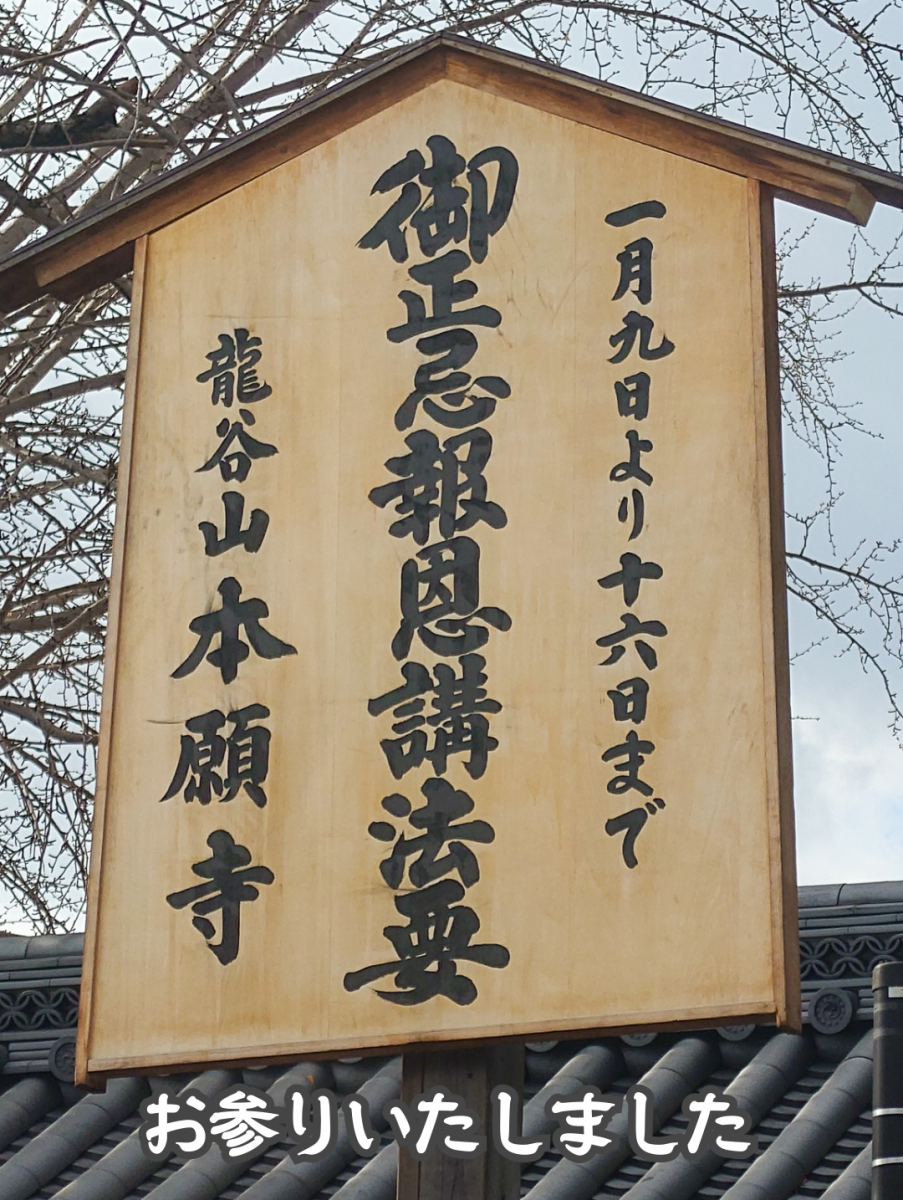 一月九日より十六日まで
御正忌報恩講法要
龍谷山本願寺
お参りいたしました